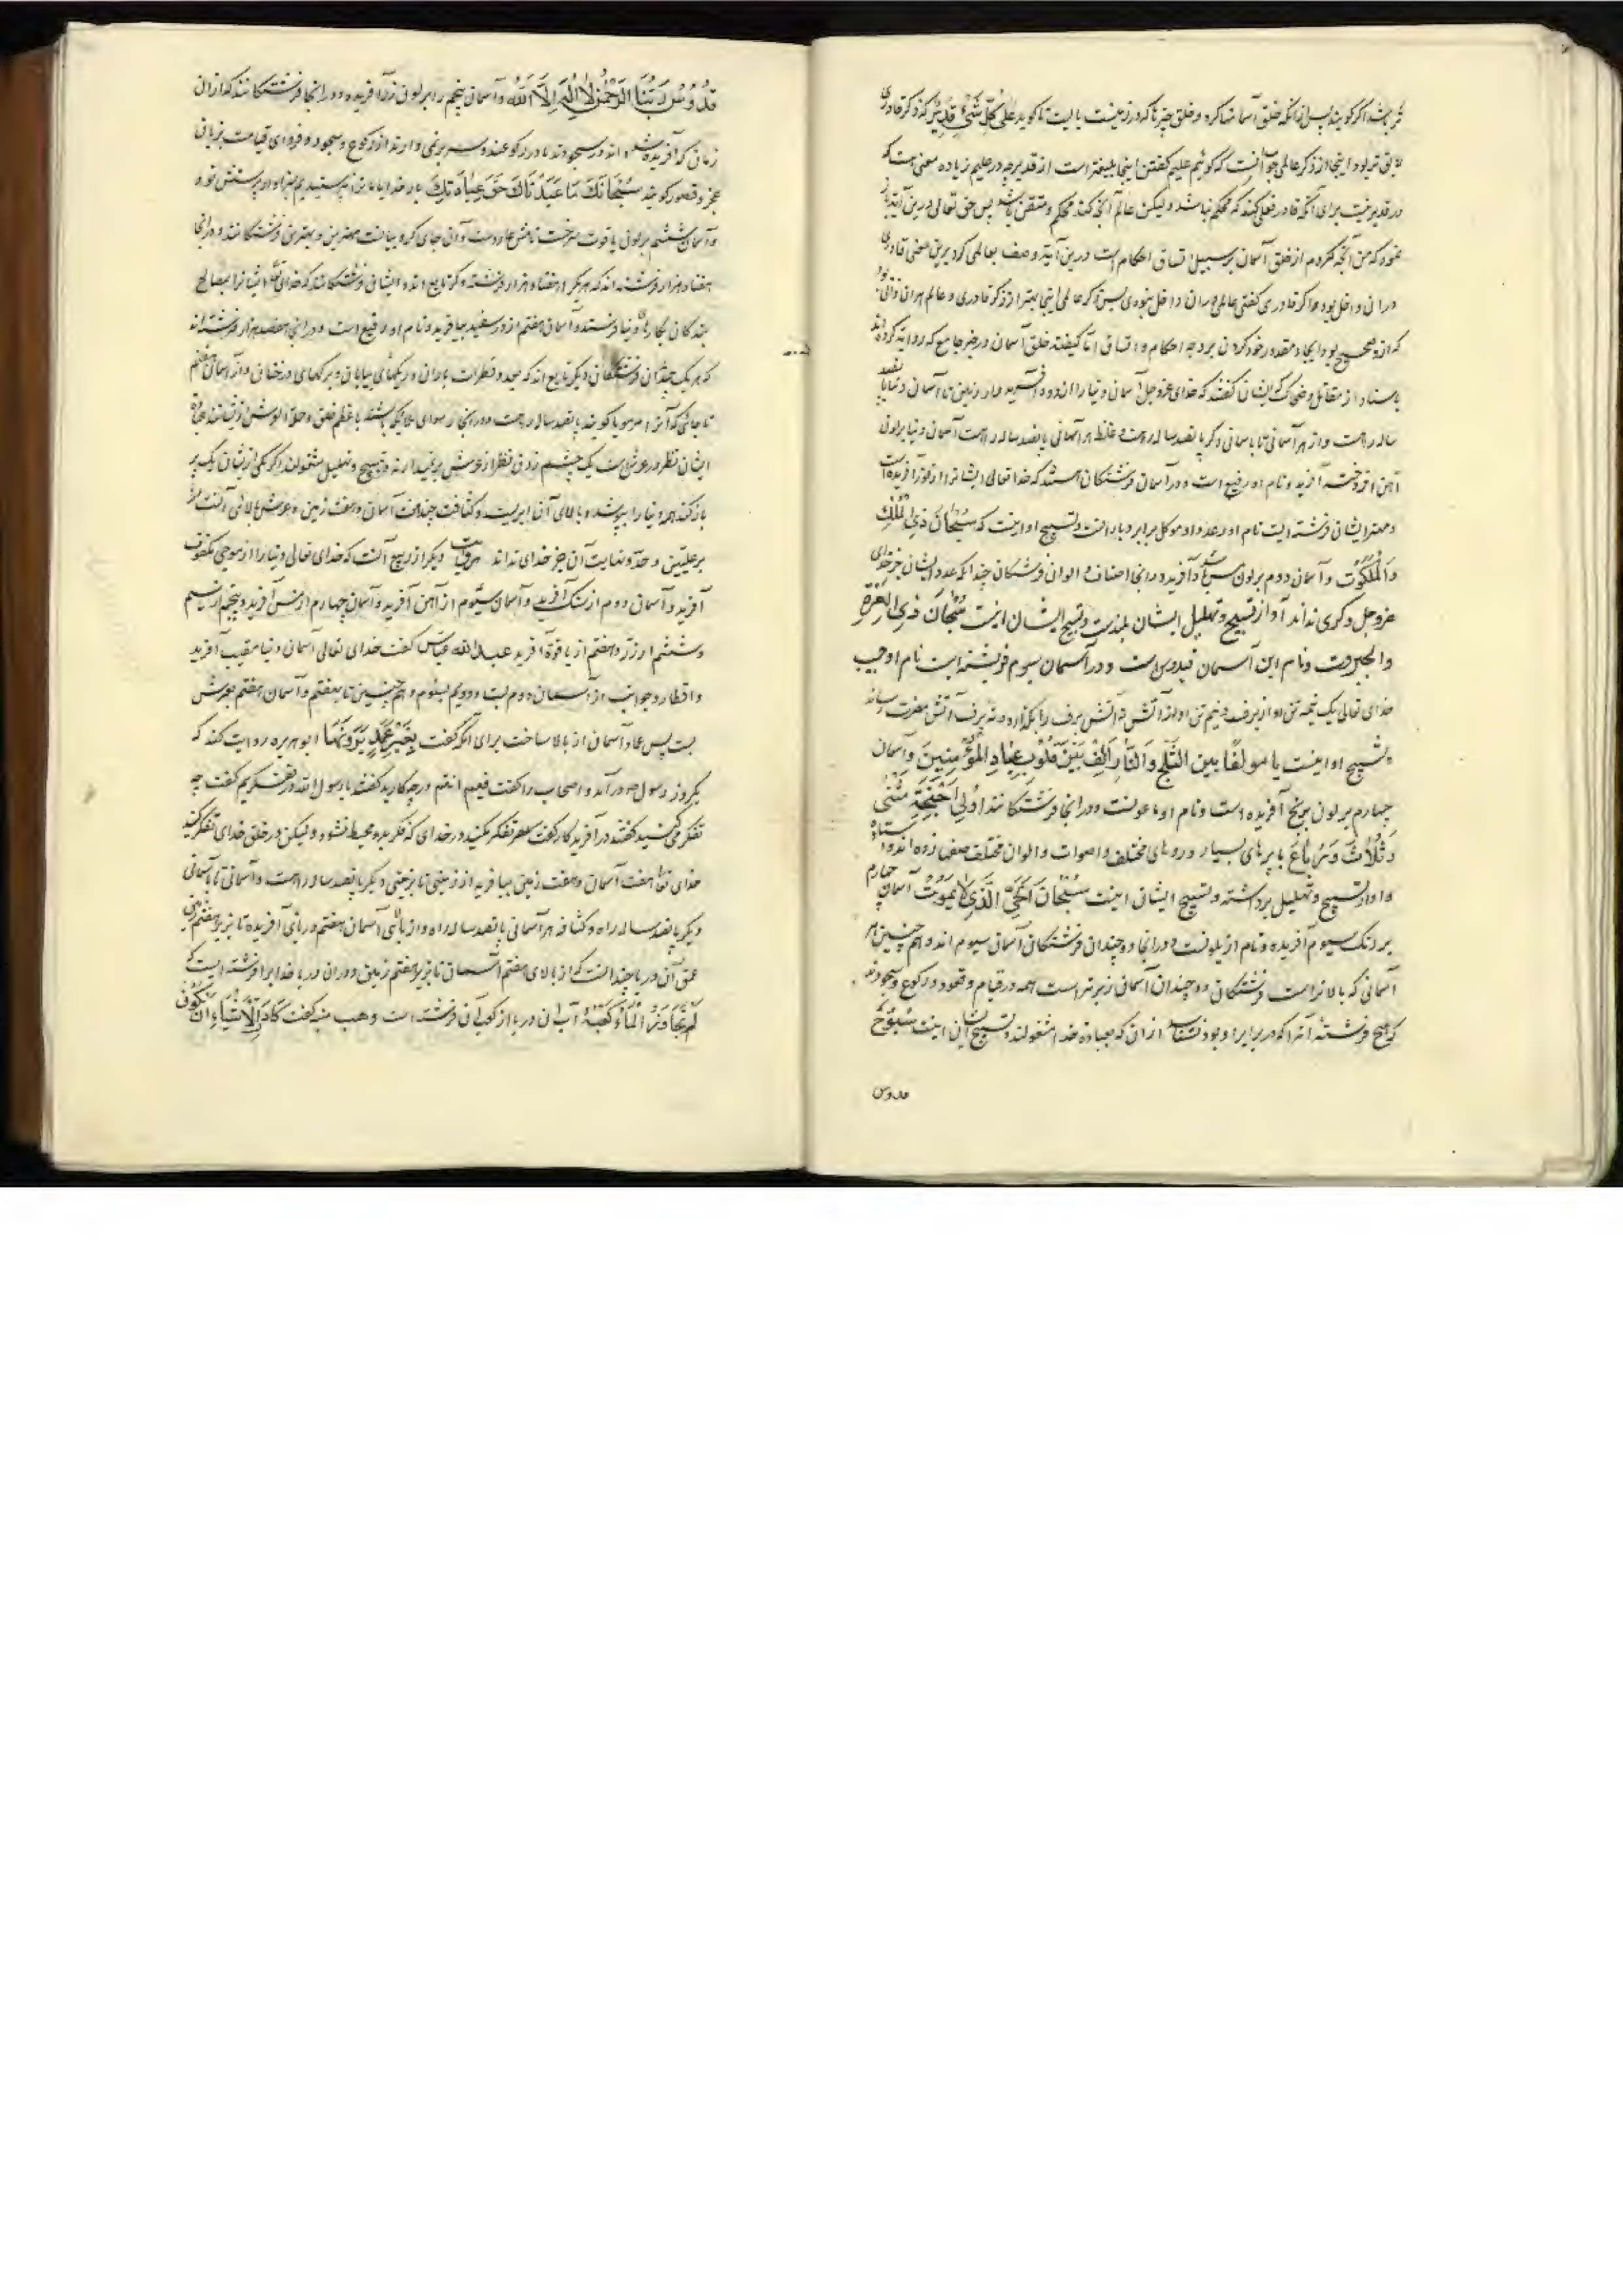 اگر گویند پس از آنکه خلق آسمانها کرد و خلق چیزها که در زمینست بایست تا گوید علی کل شیء قدیر که ذکر قادری
لایق تر بود اینجا از ذکر عالمی جواب آنست که گوئیم علیم گفتن اینجا بلیغتر است از قدیر چه در علیم زیاده معنی است که
در قدیر نیست برای آنکه قادر فعل کند که محکم نباشد ولیکن عالم آنچه کند محکم و متقن باشد پس حق تعالی درین آیت
نمود که من آنچه کردم از خلق آسمان بر سبیل اتساق احکام است درین آیة وصف بعالمی کرد برین معنی قادری
در آن داخل بود و اگر قادری گفتی عالمی در آن داخل نبودی پس ذکر عالمی اینجا بهتر از ذکر قادری
که ازو صحیح بود ایجاد مقدور خود کردن بر وجه احکام و اتساق اما کیفیته خلق آسمان در خبر جامع که روایة کرده‌اند
باسناد از مقاتل و ضحاک که ایشان گفتند که خدای عزوجل آسمان دنیا را از دود آفرید و از زمین تا آسمان دنیا پانصد
ساله راهست و از هر آسمانی تا باسمانی دگر پانصد ساله راهست و غلظ هر آسمانی پانصد ساله راهست آسمان دنیا برلون
آهن افروخته آفرید و نام او رفیع است و در آسمان فرشتگان هستند که خدا تعالی ایشانرا از نور آفریده است
و مهتر ایشان فرشته ایست نام او رعد و او موکل بر ابر و بارانست و تسبیح او اینست که سُبْحَانَ ذِی الْمُلْكِ
وَالْمَلَكُوتِ و آسمان دوم برلون مس آفرید و درانجا اصناف و الوان فرشتگان چندانکه عدد ایشان جز خدای
عزوجل دگری نداند آواز تسبیح و تهلیل ایشان بلندست و تسبیح ایشان اینست سُبْحَانَ ذِی الْعِزَّةِ
والجبروت و نام این آسمان قیدوس است و در آسمان سیوم فرشته ایست نام او حبیب
خدای تعالی یک نیمه تن او از برف و نیم تن او از آتش نه آتش برف را بگدازد و نه برف آتش مضرت رساند
تسبیح او اینست یا مولفا بین الثلج والنار اَلِّفْ بَیْنَ قُلُوبِ عِبَادِ الْمُؤْمِنِینَ و آسمان
چهارم برلون برنج آفریده است و نام او ماعونست و درانجا فرشتگانند اُولِی اَجْنِحَةٍ مَثْنٰی
وَثُلَاثَ وَرُبَاعَ با پرهای بسیار و رویهای مختلف و اصوات و الوان مختلف صف زده ایستاده‌اند
و اواز تسبیح و تهلیل برداشته و تسبیح ایشان اینست سُبْحَانَ الْحَیِّ الَّذِی لَا یَمُوتُ آسمان چهارم
برنگ سیوم آفریده و نام ازیلونست و درانجا دوچندان فرشتگان آسمان سیوم اند و هم چنین هر
آسمانی که بالاتر است فرشتگان دوچندان آسمان زیرتر است همه در قیام و قعود و رکوع و سجودند
که هیچ فرشته آنرا که در برابر او بود نشناسد از آن که بعباده خدا مشغولند و تسبیح ایشان اینست سُبُّوحٌ
قدوس
قُدُّوسٌ رَبُّنَا الرَّحْمٰنُ لَا اِلٰهَ اِلَّا اللّٰهُ و آسمان پنجم را برلون زر آفریده و درانجا فرشتگانند که از آن
زمان که آفریده شده‌اند در سجودند یا در رکوعند و سر برنمی دارند از رکوع و سجود و فردای قیامت بزبان
عجز و قصور گویند سُبْحَانَكَ مَا عَبَدْنَاكَ حَقَّ عِبَادَتِكَ بار خدایا ما ترا نپرستیدیم بسزاوار پرستش تو
و آسمان ششم برلون یاقوت سرخست نامش عاروست و آن جای کروبیانست مهترین و بهترین فرشتگانند و درانجا
هفتاد هزار فرشته اند که هر یک را هفتاد هزار فرشته دگر تابع اند و ایشان فرشتگانند که خدای تعالی ایشانرا بمصالح
بندگان بکارهای دنیا فرستد و آسمان هفتم از در سفید بیافرید و نام او رقیع است و درانجا هفتصد هزار فرشته اند
که هر یک چندان فرشتگان دیگر تابع اند که بعدد قطرات باران و ریگهای بیابان و برگهای درختان و از آسمان هفتم
تا جائی که آنرا مرمویا گویند پانصد ساله راهست
ایشان نظر در عرش است یک چشم زدن نظر از عرش برندارند و تسبیح و تهلیل مشغولند اگر یکی از ایشان یک پر
باز کند همه دنیا را بپوشد و بالای آن ابریست و کثافت چند هفت آسمان و هفت زمین و عرش بالای آنست
بر علیین و حد و نهایت آن جز خدای نداند دیگر از ربیع آنست که خدای تعالی دنیا را از موجی مکفوف
آفرید و آسمان دوم از سنگ آفرید و آسمان سیوم از آهن آفرید و آسمان چهارم از مس آفرید و پنجم از سیم
و ششم از زر و هفتم از یاقوة آفرید عبدالله عباس گفت خدای تعالی آسمان دنیا مقبب آفرید
و اقطار و جوانب از آسمان دوم بست و دویم بسیوم و هم چنین تا بهفتم و آسمان هفتم بعرش
بست پس عماد آسمان از بالا ساخت برای آنکه گفت بِغَیْرِ عَمَدٍ تَرَوْنَهَا ابوهریره روایت کند که
یکروز رسول ص درآمد و اصحاب را گفت فیم انتم در چه کارید گفتند یا رسول الله تفکر میکنیم گفت چه
تفکر میکنید گفتند در آفریدگار گفت تفکر مکنید در خدای که فکر بدو محیط نشود ولیکن در خلق خدای تفکر کنید
خدای تعالی هفت آسمان و هفت زمین بیافرید از زمینی تا بزمینی دیگر پانصد ساله راهست و آسمانی تا بآسمانی
دیگر پانصد ساله راه و کثافه هر آسمانی پانصد ساله راه و از بالای آسمان هفتم دریای آفریده تا بزیر هفتم زمین
عمق آن دریا چندانست که از بالای هفتم آسمان تا بزیر هفتم زمین و در آن دریا خدایرا فرشته ایست که
لَمْ یُجَاوِزِ الْمَاءُ كَعْبَهُ آب ان دریا از کعب آن فرشته است وهب منبه گفت كَادَ الْاَشْیَاءُ اَنْ تَكُونَ